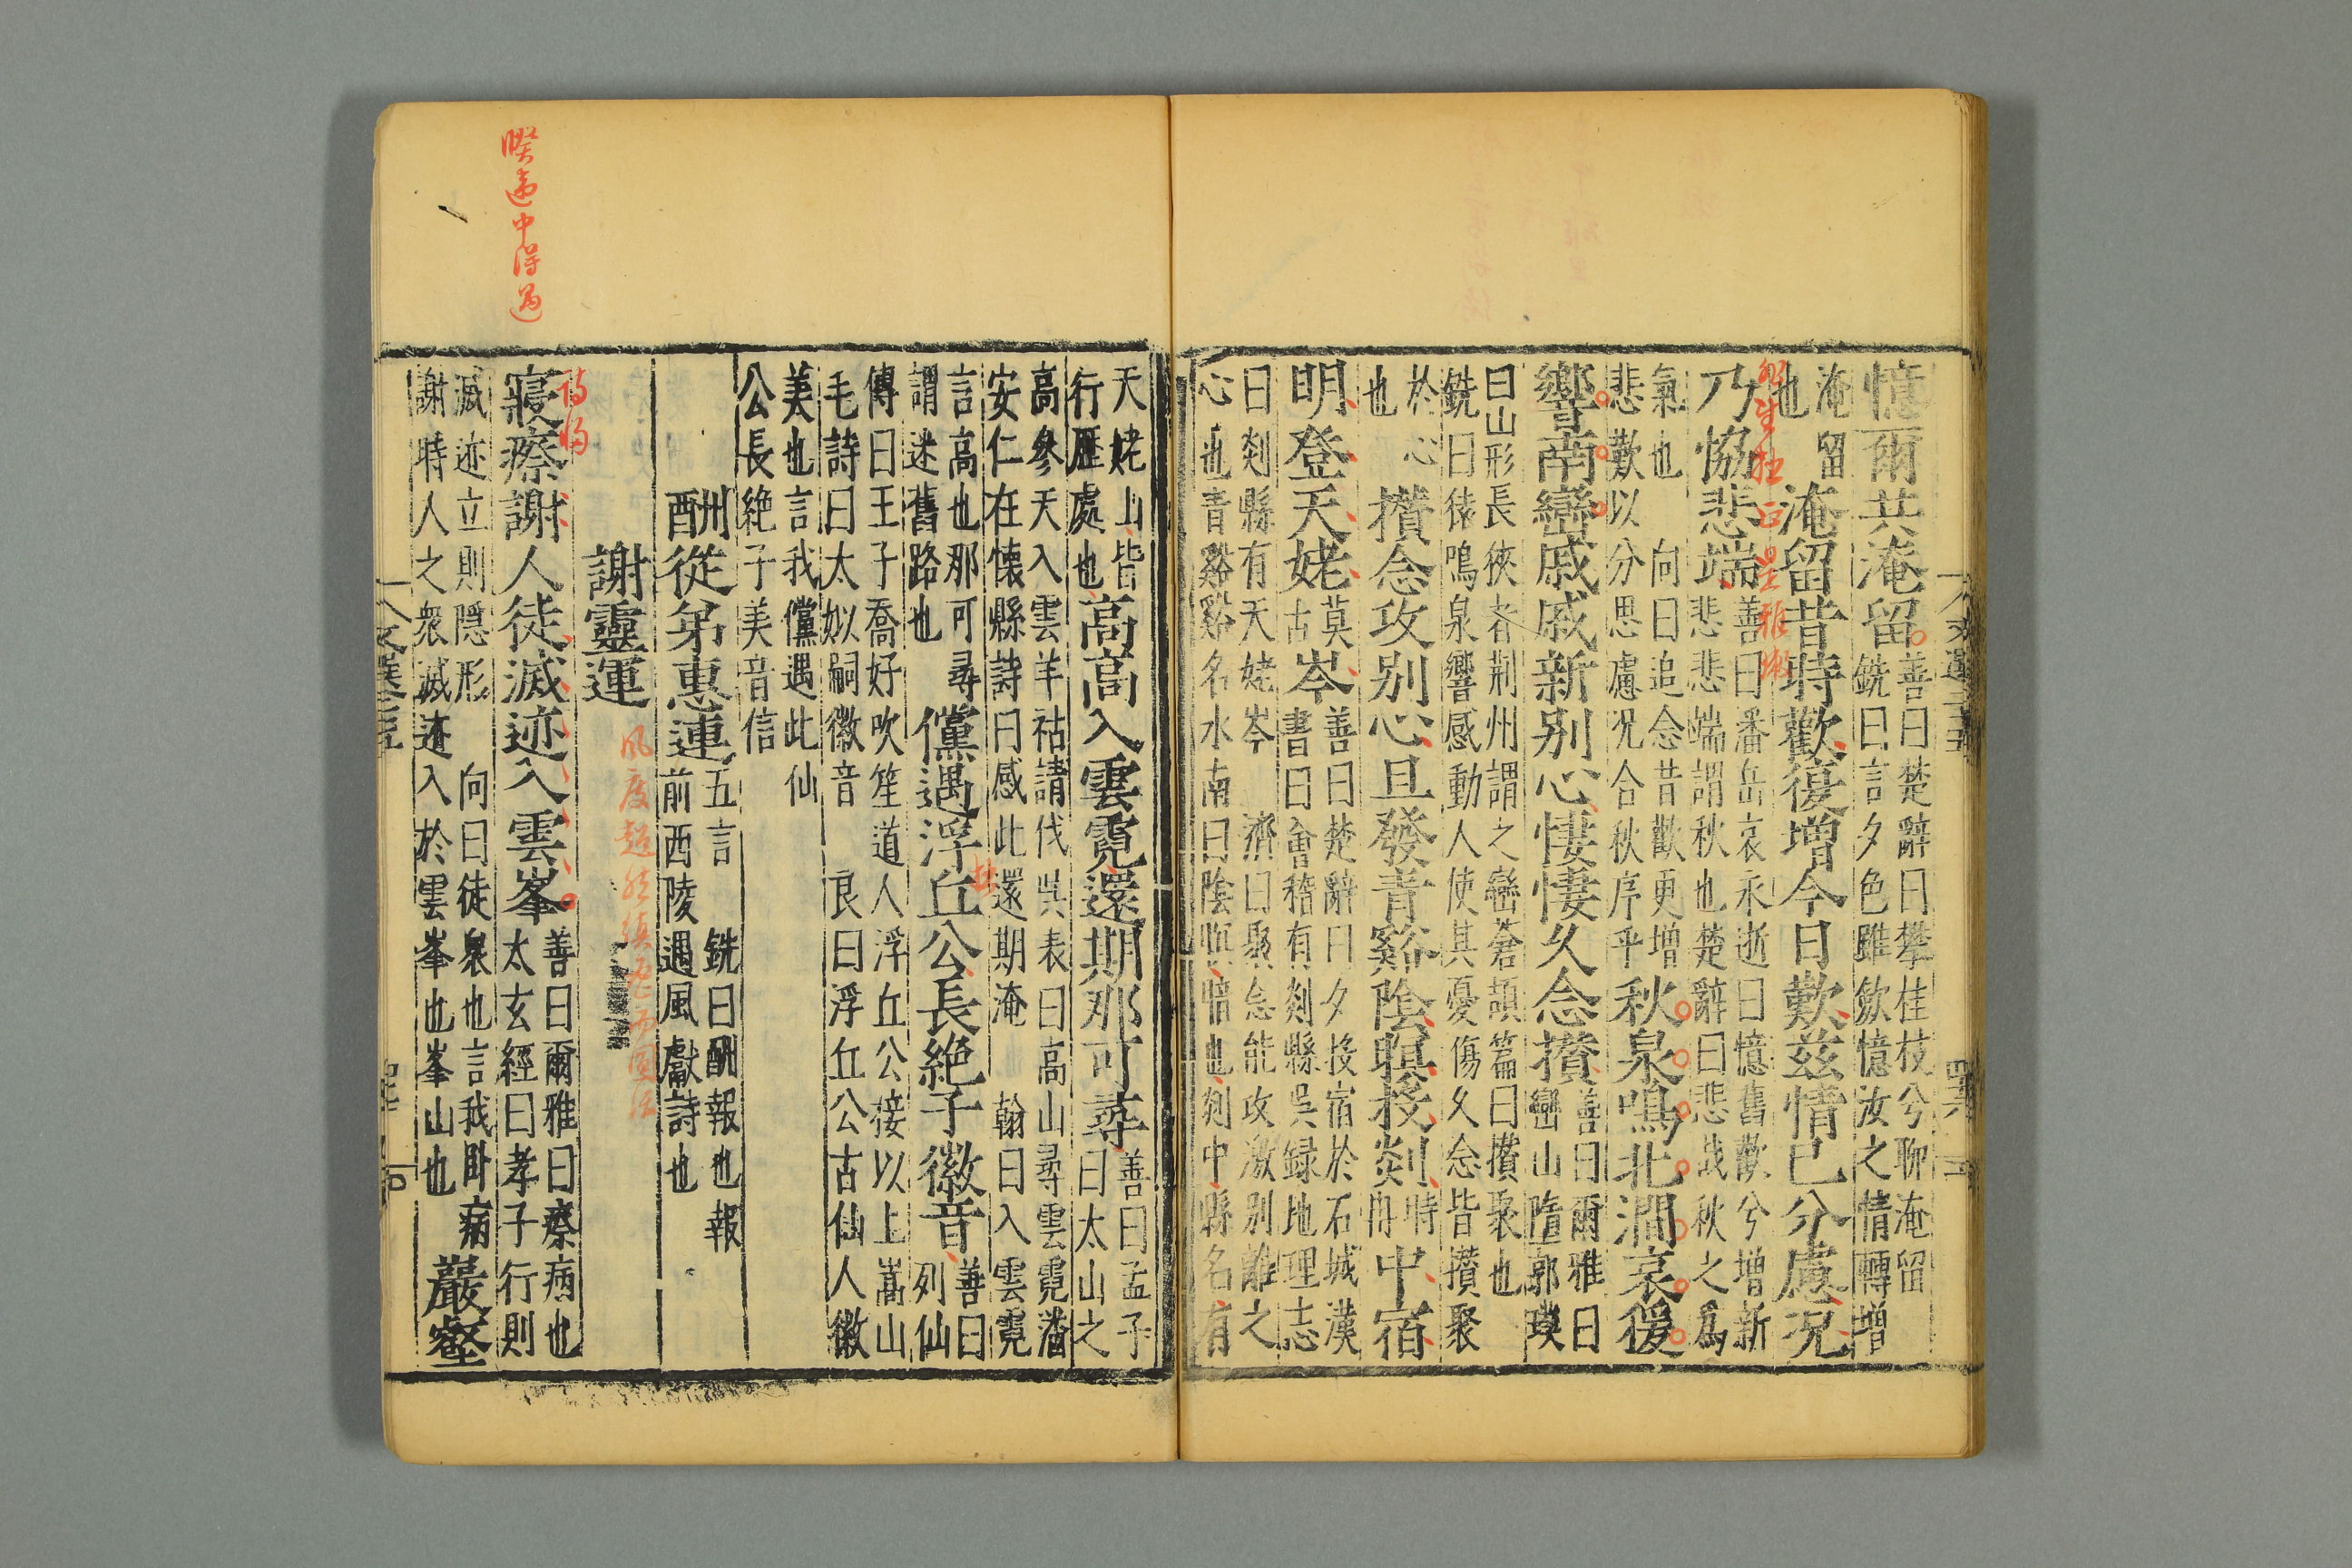 憶爾共淹留善曰楚辭曰攀桂枝兮聊淹留
銑曰言夕色雖斂憶汝之情轉增
淹留
也淹留昔時歡復增今日歎茲情已分慮況
善曰潘岳哀永逝曰憶舊歡兮增新
乃協悲端悲悲端謂秋也楚辭曰悲哉秋之為
氣也向曰追念昔歡更增
悲歎以分思慮況合秋序乎秋泉鳴北澗哀猨
響南巒戚戚新別心悽悽久念攢善曰爾雅曰
巒山墮郭璞
曰山形長狹者荊州謂之巒蒼頡篇曰攢聚也
銑曰猿鳴泉響感動人使其憂傷久念皆攢聚
於心
也攢念攻別心旦發青谿陰暝投剡中宿時
明登天姥岑善曰楚辭曰夕投宿於石城漢
書曰會稽有剡縣吳錄地理志
曰剡縣有天姥岑濟曰聚念能攻激別離之
心也青谿谿名水南曰陰暝暗也剡中縣名有
天姥山皆
行歷處也高高入雲霓還期那可尋善曰孟子
曰太山之
高參天入雲羊祜請伐吳表曰高山尋雲霓潘
安仁在懷縣詩曰感此還期淹翰曰入雲霓
言高也那可尋
謂迷舊路也儻遇浮丘公長絕子徽音善曰
列仙
傳曰王子喬好吹笙道人浮丘公接以上嵩山
毛詩曰太姒嗣徽音良曰浮丘公古仙人徽
美也言我儻遇此仙
公長絕子美音信
酬從弟惠連五言銑曰酬報也報
前西陵遇風獻詩也
謝靈運
寢瘵謝人徒滅迹入雲峯善曰爾雅曰瘵病也
太玄經曰孝子行則
滅迹立則隱形向曰徒眾也言我臥病
謝時人之眾滅迹入於雲峯也峯山也巖壑
暌違中得遇